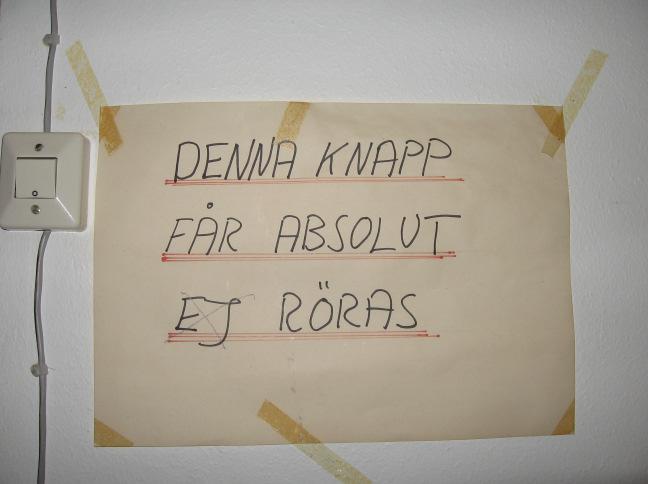 DENNA KNAPP
FÅR ABSOLUT
EJ RÖRAS